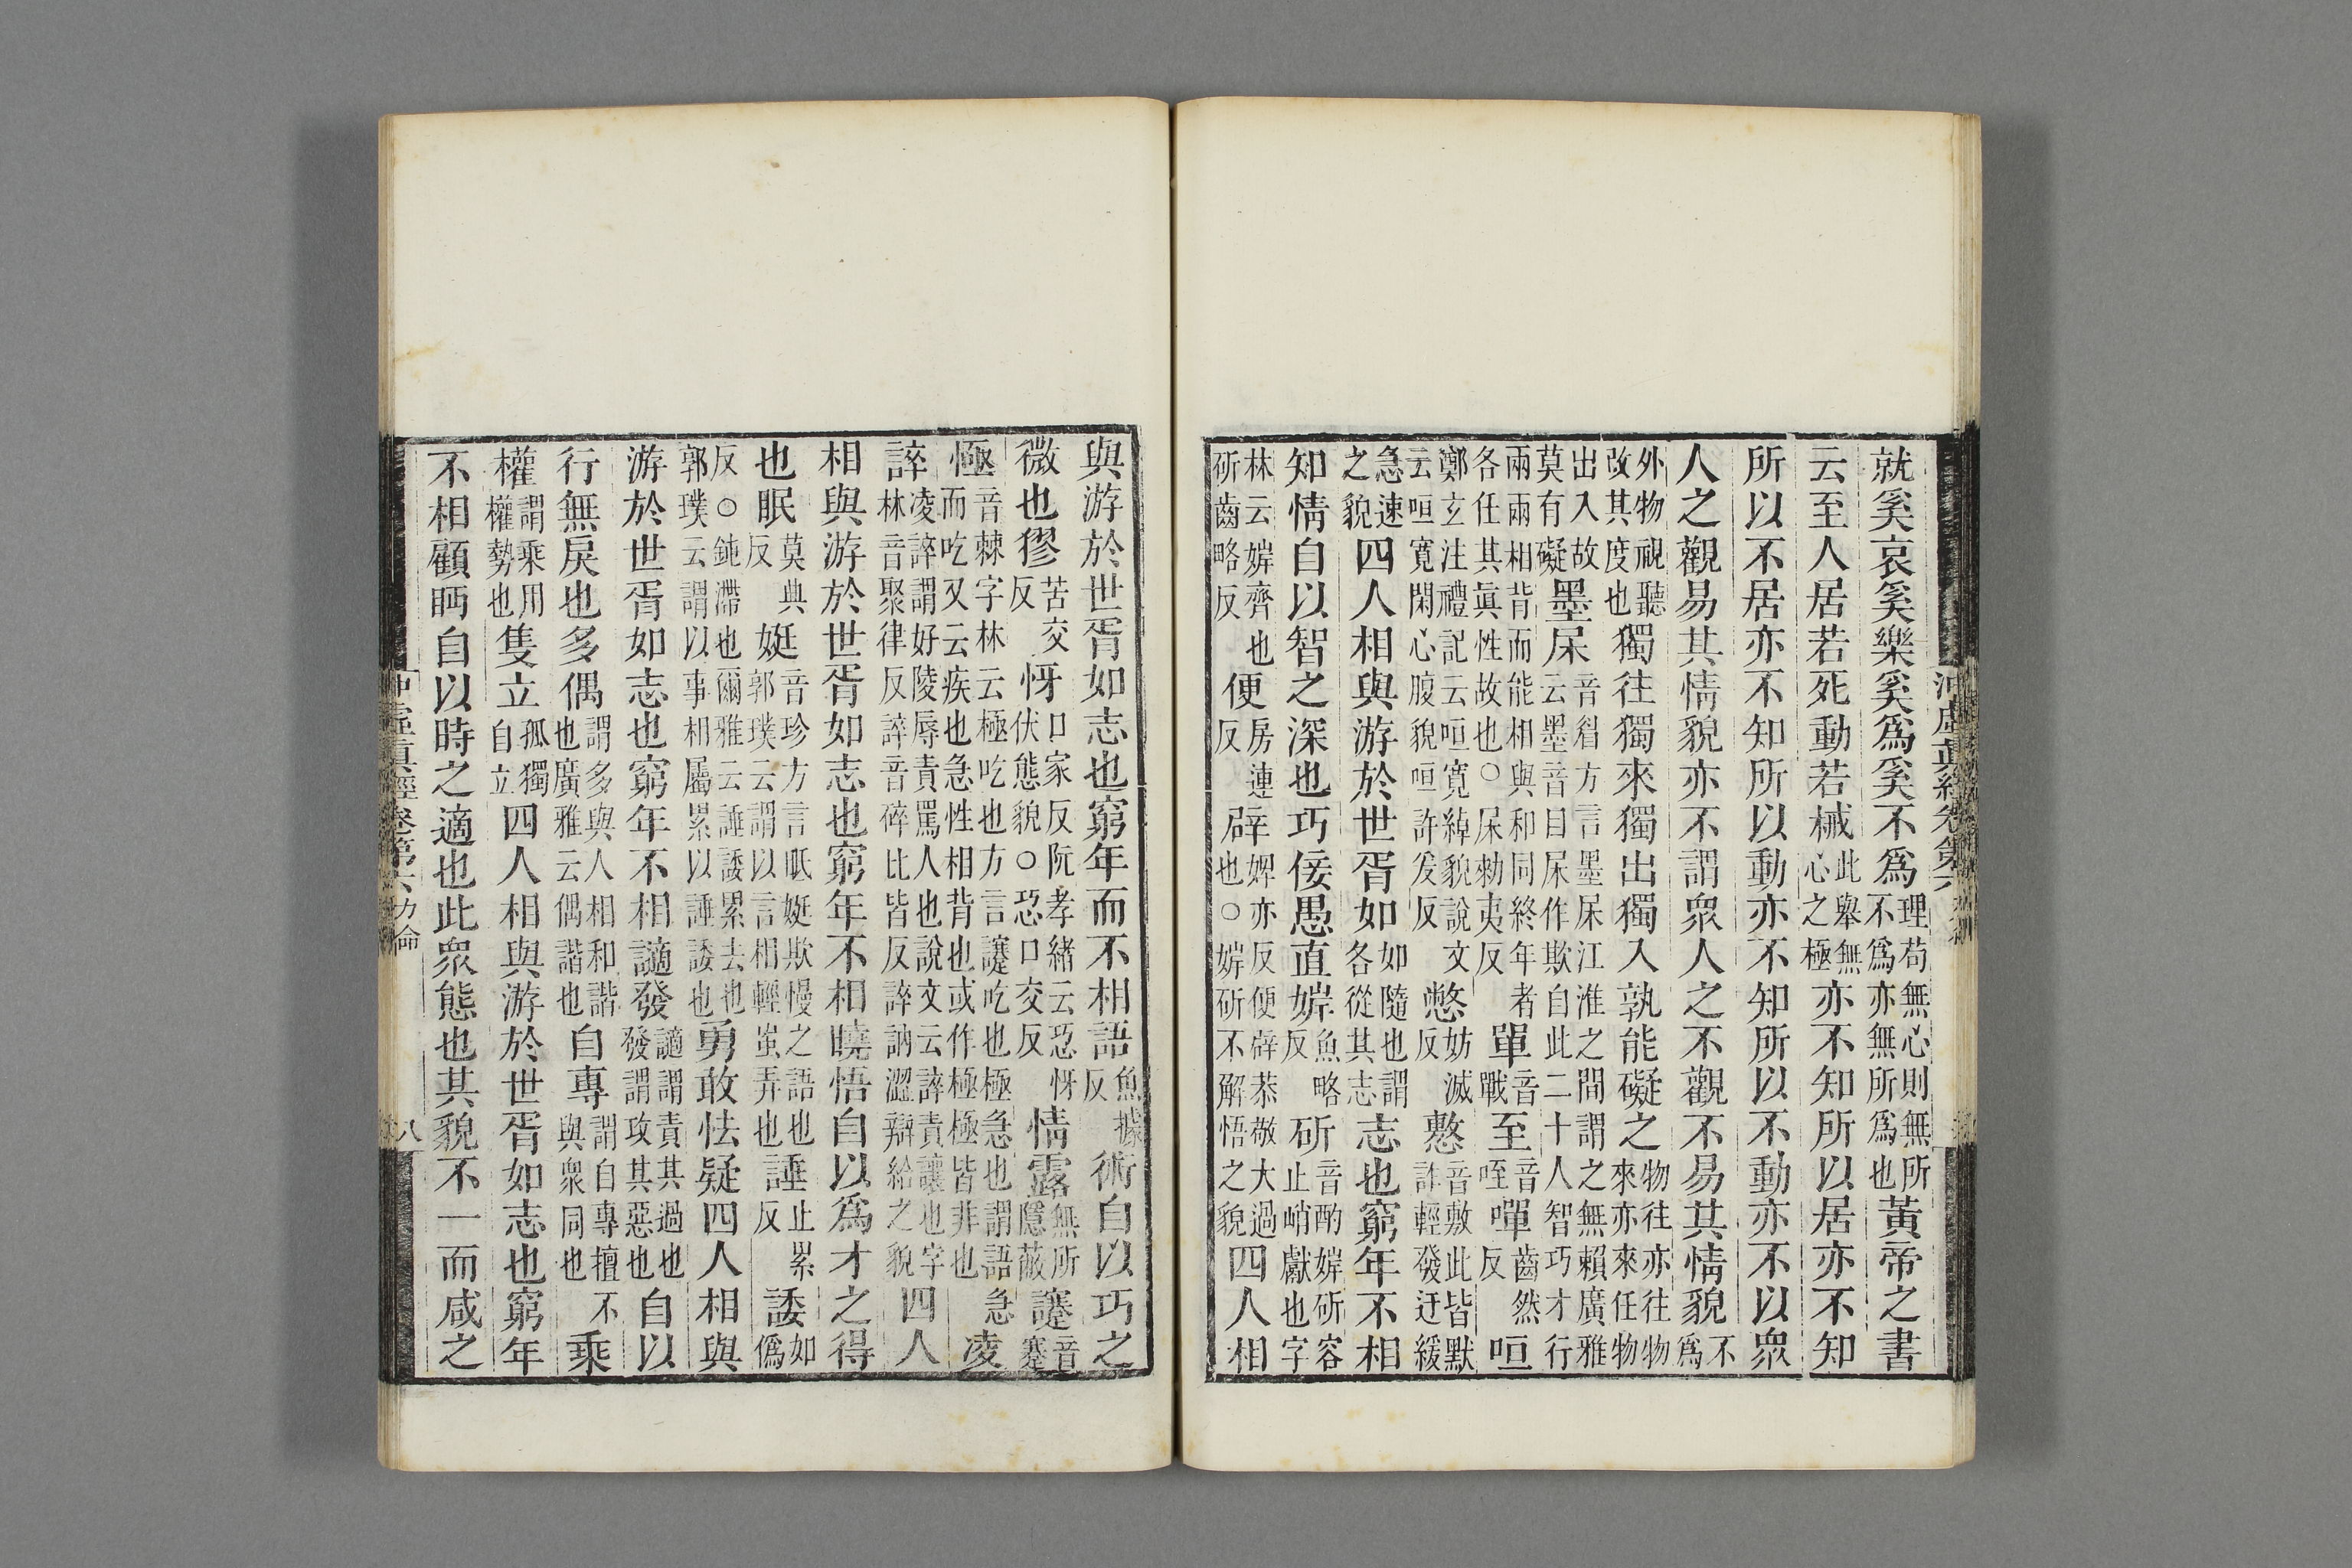 就奚哀奚樂奚爲奚不爲理苟無心則無所不爲亦無所爲也黃帝之書
云至人居若死動若械此舉無心之極亦不知所以居亦不知
所以不居亦不知所以動亦不知所以不動亦不以眾
人之觀易其情貌亦不謂眾人之不觀不易其情貌不爲
外物視聽改其度也獨往獨來獨出獨入孰能礙之物往亦往物來亦來任物
出入故莫有礙墨㞘音眉方言墨㞘江淮之間謂之無賴廣雅云墨音目㞘作欺自此二十人智巧才行
兩兩相背而能相與和同終年者各任其眞性故也○㞘勑夷反單音戰至音咥嘽齒然反咺
鄭玄注禮記云咺寬綽貌說文云咺寬閑心腹貌咺許爰反憋妨滅反憨音敷此皆默詐輕發迂緩
急速之貌四人相與游於世胥如志也如隨也謂各從其志窮年不相
知情自以智之深也巧佞愚直婩魚略反斫音酌婩斫容止峭巘也字
林云婩齊也斫齒略反便房連反辟婢亦反便辟恭敬大過也○婩斫不解悟之貌四人相
沖虛眞經卷第六
與游於世胥如志也窮年而不相語魚據反術自以巧之
微也㺒苦交反㤉口家反阮孝緒云㺒㤉伏態貌○㺒口交反情露無所隱蔽𧮈音蹇
極音棘字林云極吃也方言𧮈吃也極急也謂語急而吃又云疾也急性相背也或作極極皆非也凌
誶凌誶謂好陵辱責罵人也說文云誶責讓也字林音聚律反誶音碎比皆反誶訥澀辯給之貌四人
相與游於世胥如志也窮年不相曉悟自以爲才之得
也眠莫典反娗音珍方言眠娗欺慢之語也郭璞云謂以言相輕蚩弄也諈止累反諉如僞
反○鈍滯也爾雅云諈諉累去也郭璞云謂以事相屬累以諈諉也勇敢怯疑四人相與
游於世胥如志也窮年不相讁發讁謂責其過也發謂攻其惡也自以
行無戾也多偶謂多與人相和諧也廣雅云偶諧也自專謂自專擅不與眾同也乘
權謂乘用權勢也隻立孤獨自立四人相與游於世胥如志也窮年
不相顧眄自以時之適也此眾態也其貌不一而咸之
沖虛眞經卷第六 力命 八